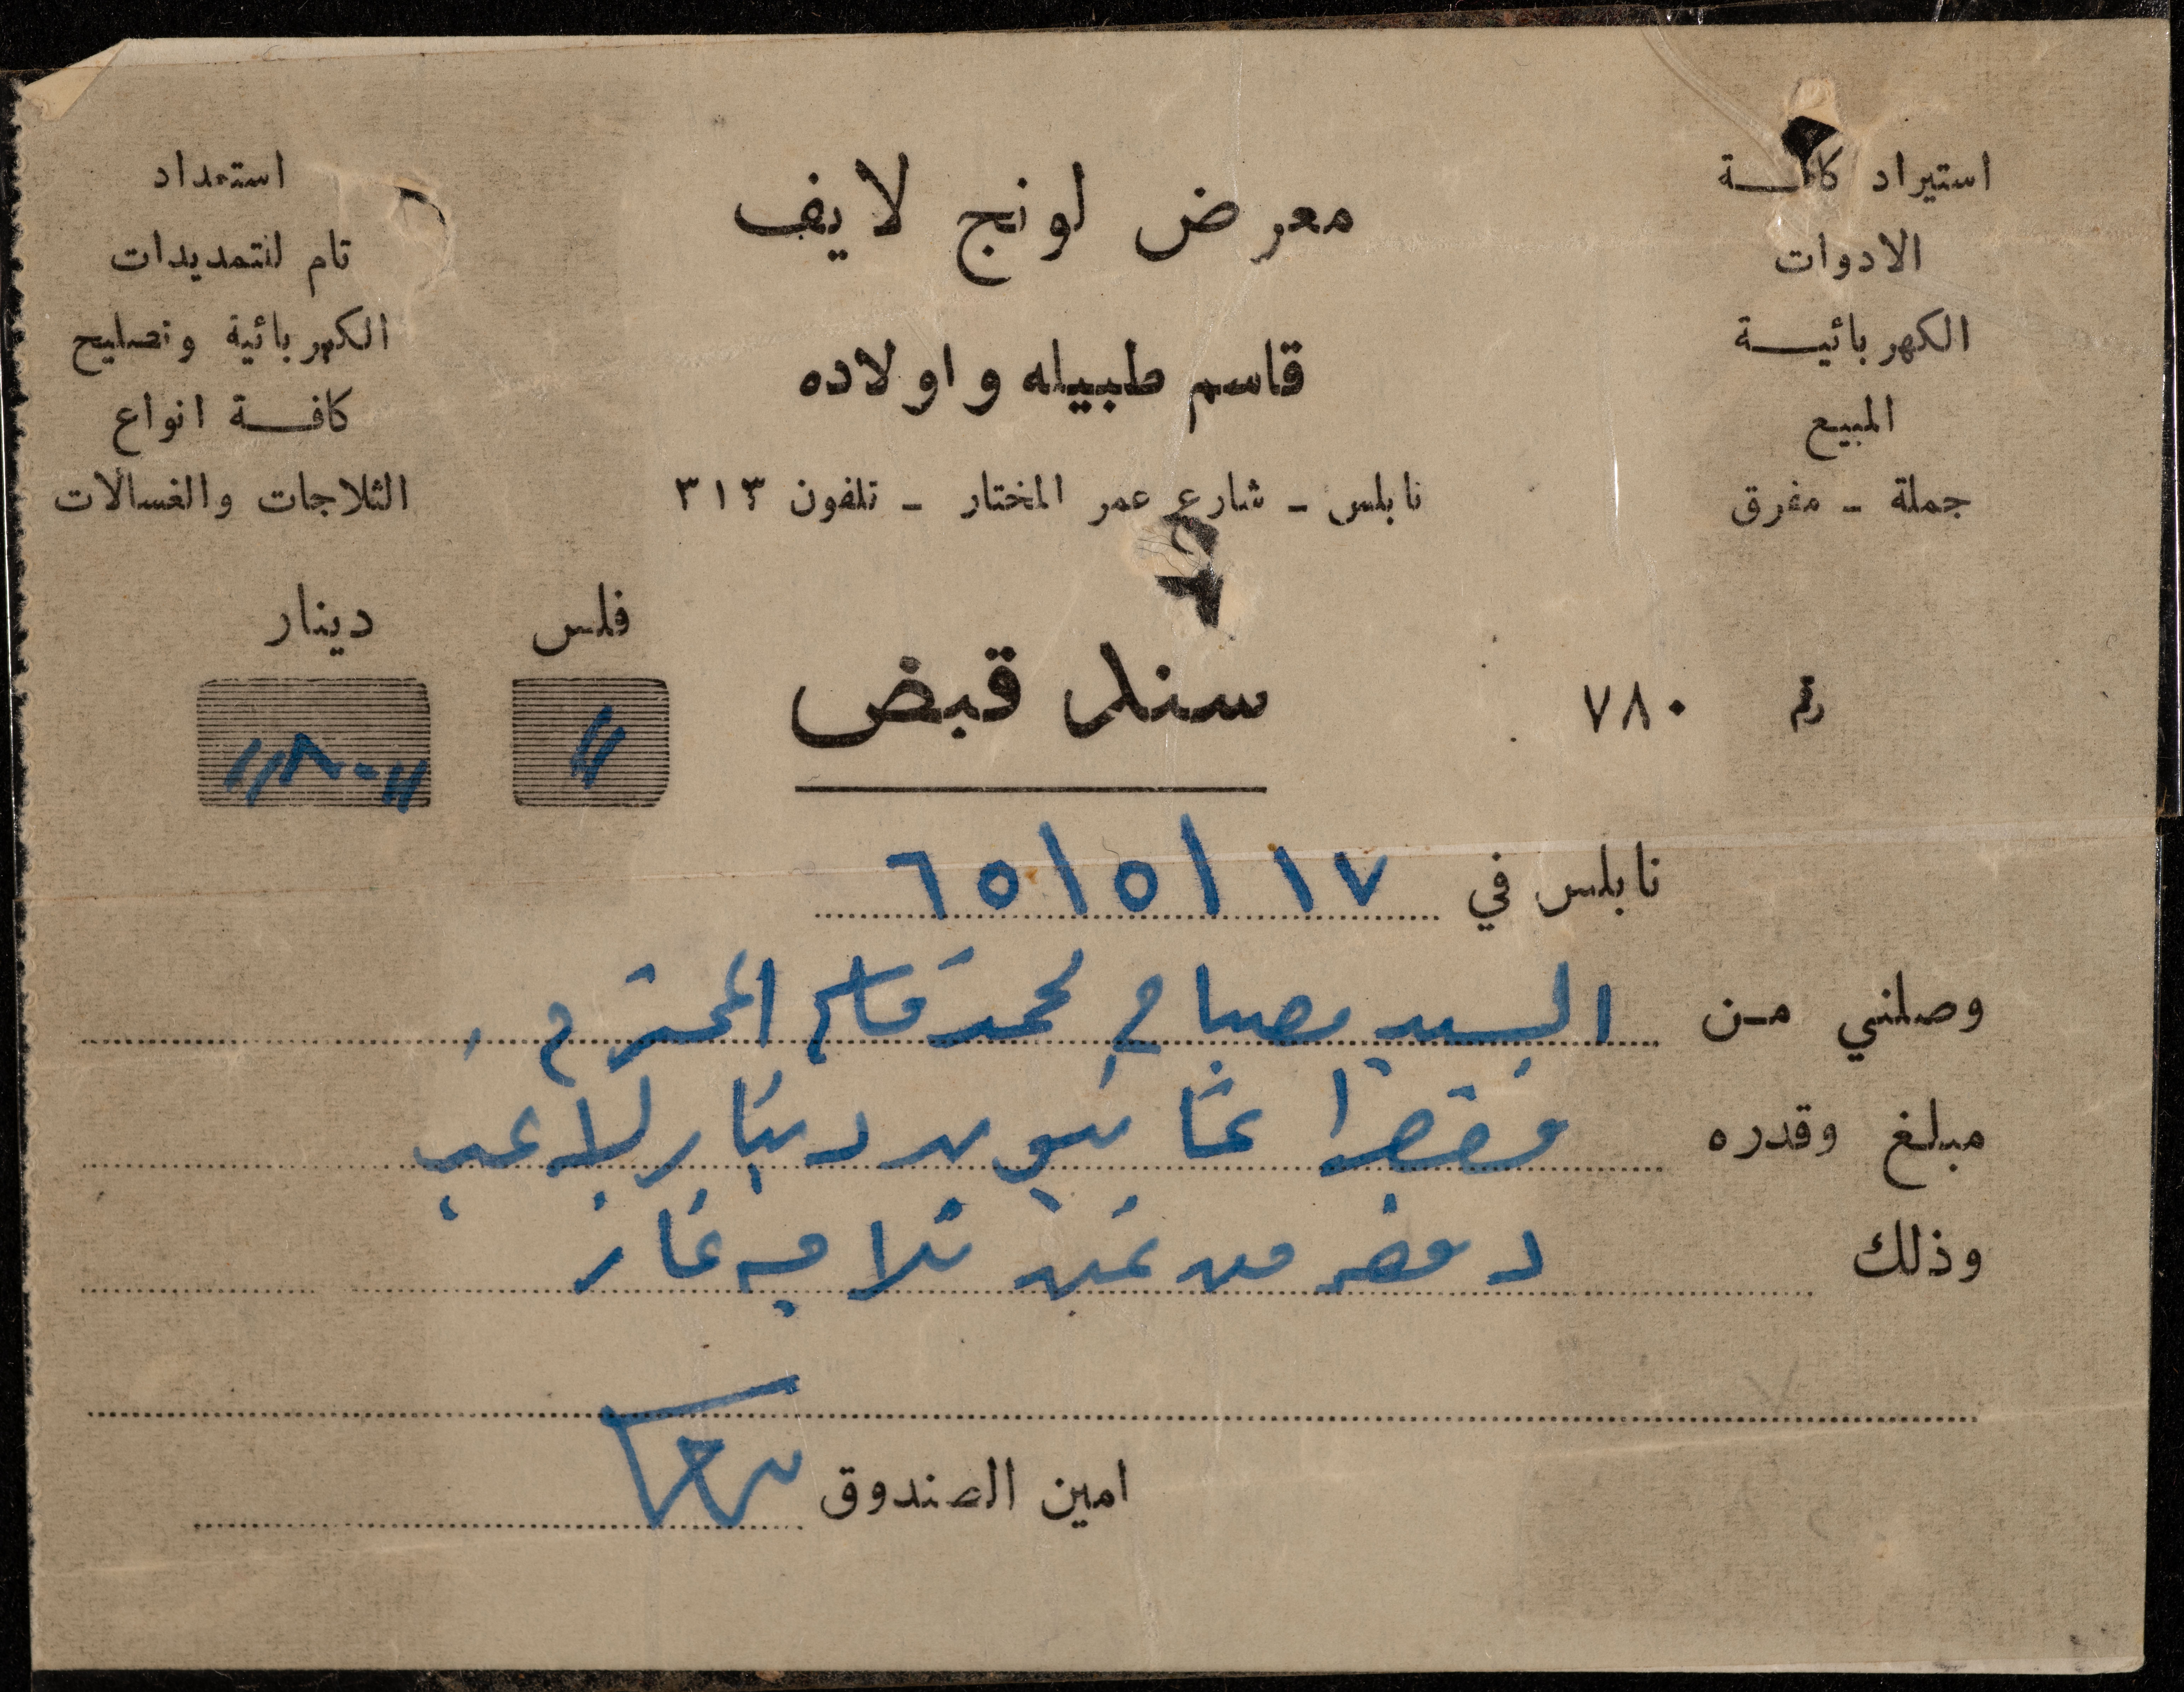 استيراد كافـــة
الادوات
الكهربائيـــة
المبيع
جملة - مفرق
معرض لونج لايف
قاسم طبيله واولاده
نابلس - شارع عمر المختار - تلفون ٣١٣
استعداد
تام للتمديدات
الكهربائية وتصليح
كافـــة انواع
الثلاجات والغسالات
رقم ٧٨٠
سند قبض
فلس دينار
نابلس في ١٧ / ٥ / ٦٥
وصلني من السيد مصباح محمد قاسم المحترم
مبلغ وقدره فقط ثمانون دينار لا غير
وذلك دفعه من ثمن ثلاجه غاز
امين الصندوق